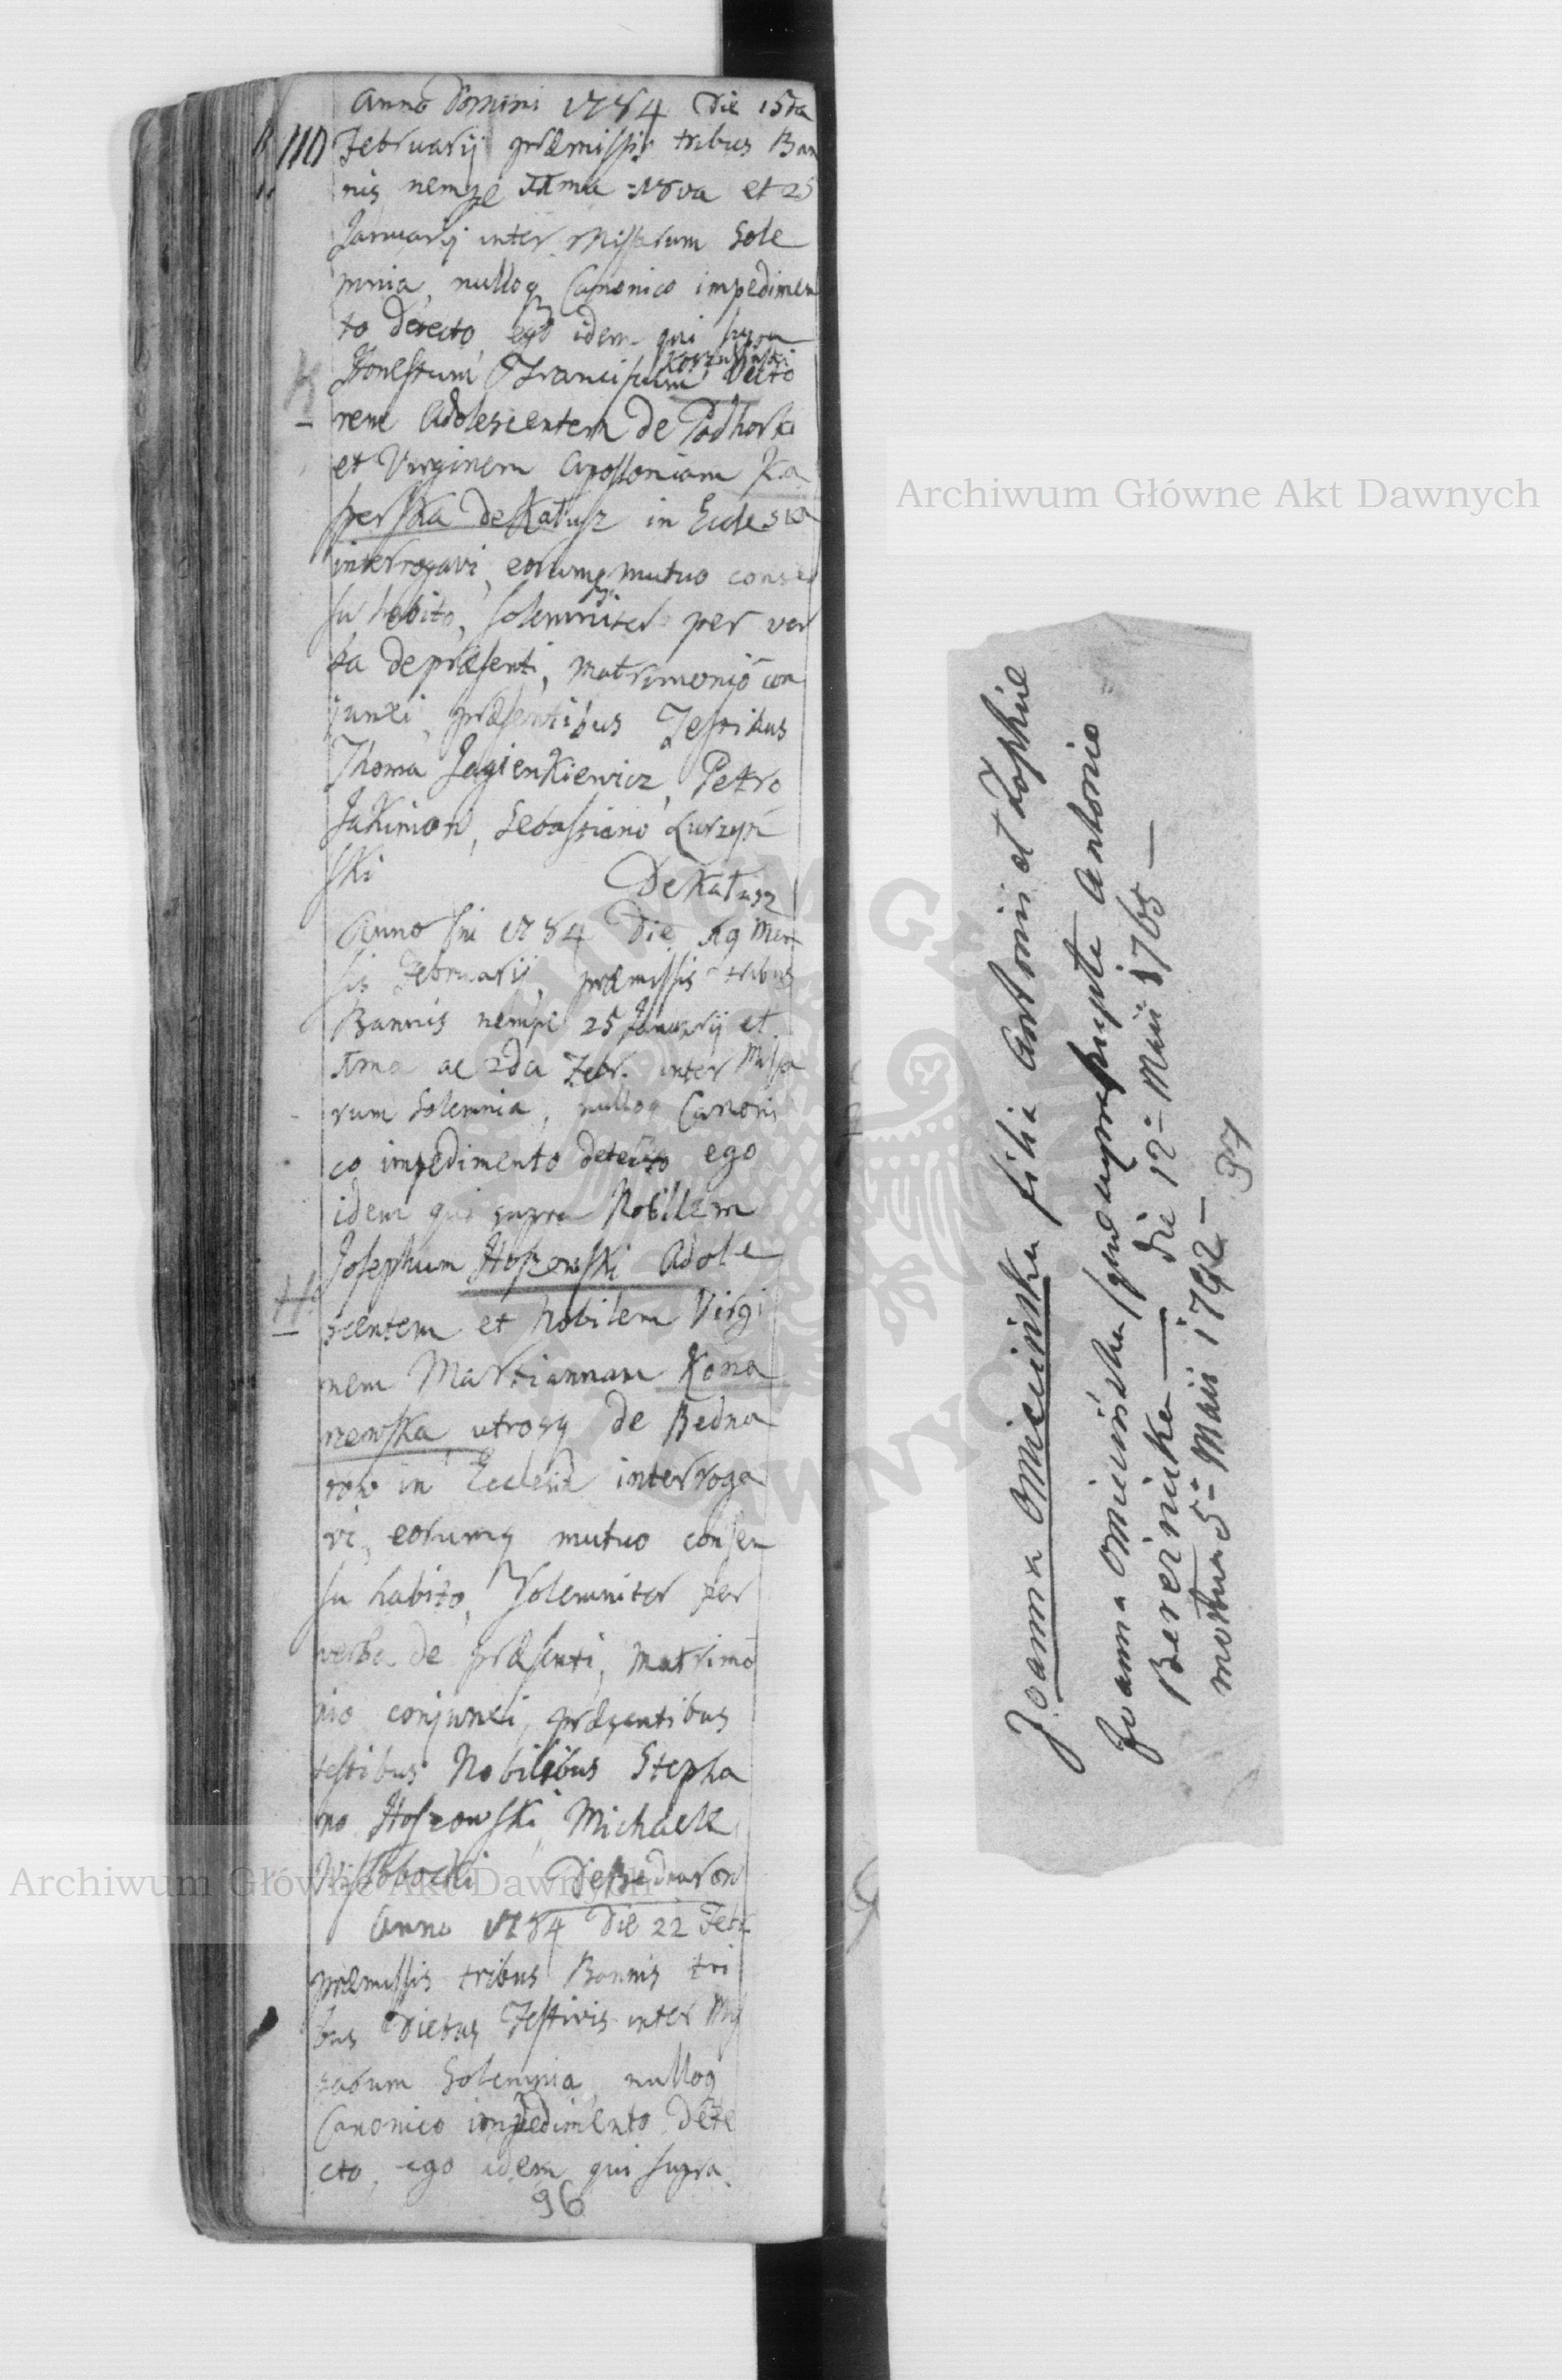 Anno Domini 1784 Die 15ta
110 Februarij præmissis tribus Ban
nis nempe 11ma 18va et 25
Januarij inter Missarum Sole
mnia, nulloq Canonico impedimen
to detecto, ego idem qui supra
Honestum Franciscum Victo
rem Adolescentem de Podhorki
et Virginem Apolloniam Ka
sperska de Kałusz in Ecclesia
interrogavi, eorumq mutuo consen
su habito, solemniter per ver
ba de præsenti, matrimonio con
junxi, præsentibus Testibus
Thoma Jagienkiewicz, Petro
Jakimon, Sebastiano Łurzyń
ski
K
De Kałusz
Anno Dni 1784 Die 19 Men
sis Februarij, præmissis tribus
Bannis nempe 25 Januarij et
1ma ac 2da Febr. inter Missa
rum Solemnia, nulloq Canoni
co impedimento detecto ego
idem qui supra Nobilem
Josephum Hoszowski Adole
H.
scentem et Nobilem Virgi
nem Mariannam Kona
rzewska, utrosq de Bedna
row in Ecclesia interroga
vi, eorumq mutuo consen
su habito, Solemniter per
verba de præsenti, matrimo
nio conjunxi, præsentibus
testibus Nobilibus Stepha
no Hoszowski, Michaele
Wisłobocki De Bednarow
Anno 1784 Die 22 Febr
præmissis tribus Bannis tri
bus Diebus Festivis inter Mis
sarum Solemnia, nulloq
Canonico impedimento Dete
cto, ego idem qui supra
96
Joanna Omiecinska filia Antonii et Zophiæ
Joanna Omiecińska Antonio
Berezincka — die 12 = Maii 1765 —
mortua 5 = Maii 1792 —
97
Archiwum Główne Akt Dawnych
Archiwum Główne Akt Dawnych